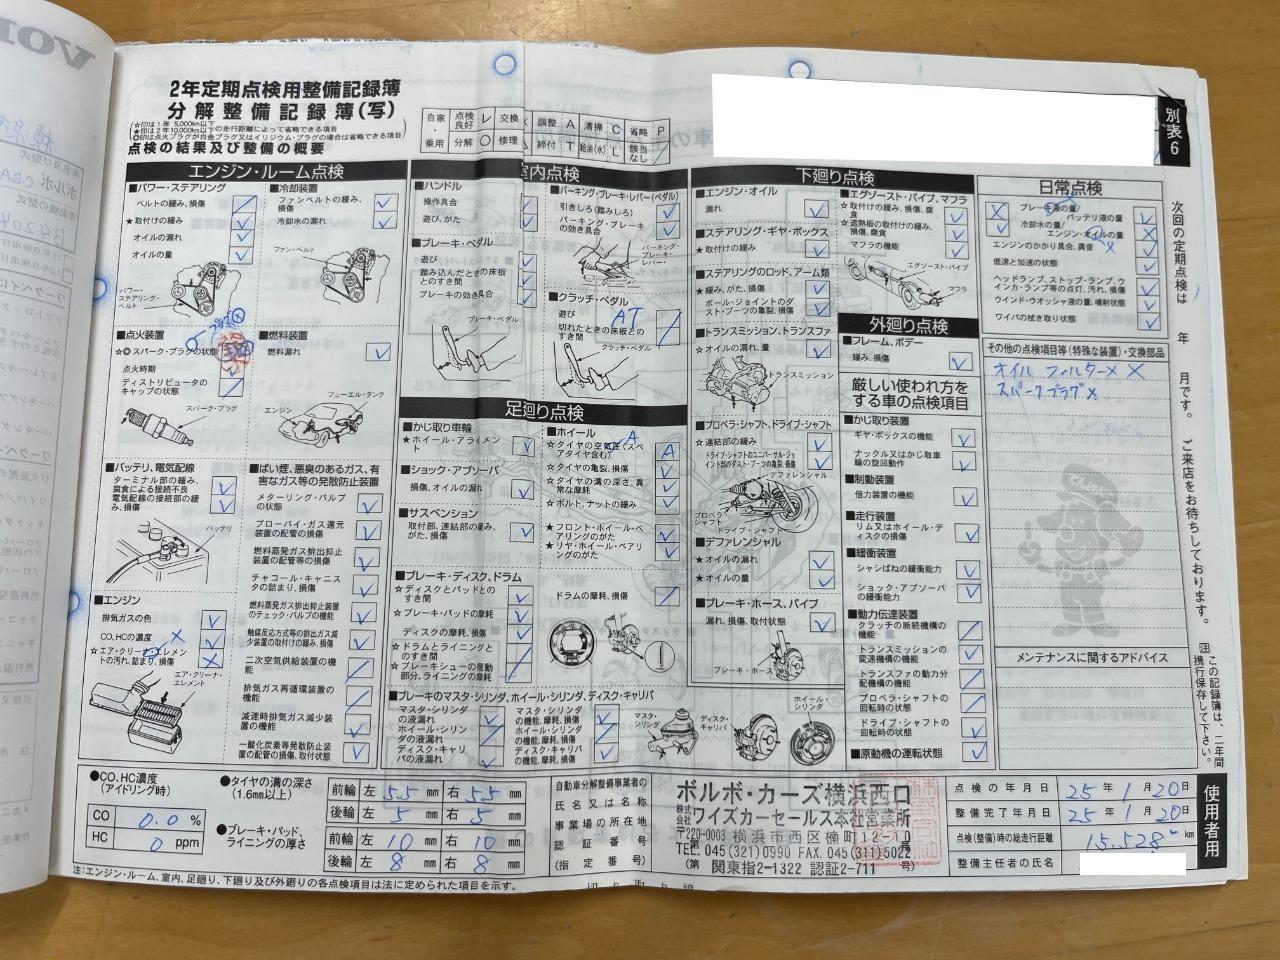 VOL
2年定期点検用整備記録簿
分解整備記録簿(写)
☆印は1年 5,000km以下
★印は2年10,000km以下の走行距離によって省略できる項目
✪印は点火プラグが白金プラグ又はイリジウム・プラグの場合は省略できる項目
点検の結果及び整備の概要
自家・乗用
点検良好 レ 交換
分解 ○ 修理
調整 A 清掃 C 省略 P
締付 T 給油(水) L 該当なし
別表6
エンジン・ルーム点検
■パワー・ステアリング
ベルトの緩み、損傷
★取付けの緩み
オイルの漏れ
オイルの量
パワー・ステアリング・ベルト
■冷却装置
ファンベルトの緩み、損傷
冷却水の漏れ
ファン・ベルト
■点火装置
☆✪スパーク・プラグの状態
点火時期
ディストリビュータのキャップの状態
スパーク・プラグ
■燃料装置
燃料漏れ
フューエル・タンク
エンジン
■バッテリ、電気配線
ターミナル部の緩み、腐食による接続不良
電気配線の接続部の緩み、損傷
バッテリ
■エンジン
排気ガスの色
CO、HCの濃度
☆エア・クリーナ・エレメントの汚れ、詰まり、損傷
エア・クリーナ・エレメント
■ばい煙、悪臭のあるガス、有害なガス等の発散防止装置
メターリング・バルブの状態
ブローバイ・ガス還元装置の配管の損傷
燃料蒸発ガス排出抑止装置の配管等の損傷
チャコール・キャニスタの詰まり、損傷
燃料蒸発ガス排出抑止装置のチェック・バルブの機能
触媒反応方式等の排出ガス減少装置の取付けの緩み、損傷
二次空気供給装置の機能
排気ガス再循環装置の機能
減速時排気ガス減少装置の機能
一酸化炭素等発散防止装置の配管の損傷、取付状態
室内点検
■ハンドル
操作具合
遊び、がた
■ブレーキ・ペダル
遊び
踏み込んだときの床板とのすき間
ブレーキの効き具合
ブレーキ・ペダル
■パーキング・ブレーキ・レバー(ペダル)
引きしろ(踏みしろ)
パーキング・ブレーキの効き具合
パーキング・ブレーキ・レバー
■クラッチ・ペダル
AT
遊び
切れたときの床板とのすき間
クラッチ・ペダル
足廻り点検
■かじ取り車輪
★ホイール・アライメント
■ショック・アブソーバ
損傷、オイルの漏れ
■サスペンション
取付部、連結部の緩み、がた、損傷
■ホイール
☆タイヤの空気圧(スペアタイヤ含む) A
☆タイヤの亀裂、損傷
☆タイヤの溝の深さ、異常な摩耗
☆ボルト、ナットの緩み
★フロント・ホイール・ベアリングのがた
★リヤ・ホイール・ベアリングのがた
■ブレーキ・ディスク、ドラム
☆ディスクとパッドとのすき間
☆ブレーキ・パッドの摩耗
ディスクの摩耗、損傷
☆ドラムとライニングとのすき間
☆ブレーキシューの摺動部分、ライニングの摩耗
ドラムの摩耗、損傷
■ブレーキのマスタ・シリンダ、ホイール・シリンダ、ディスク・キャリパ
マスタ・シリンダの液漏れ
ホイール・シリンダの液漏れ
ディスク・キャリパの液漏れ
マスタ・シリンダの機能、摩耗、損傷
ホイール・シリンダの機能、摩耗、損傷
ディスク・キャリパの機能、摩耗、損傷
マスタ・シリンダ
ディスク・キャリパ
ホイール・シリンダ
下廻り点検
■エンジン・オイル
漏れ
■ステアリング・ギヤ・ボックス
★取付けの緩み
■ステアリングのロッド、アーム類
★緩み、がた、損傷
ボール・ジョイントのダスト・ブーツの亀裂、損傷
■トランスミッション、トランスファ
☆オイルの漏れ、量
トランスミッション
■プロペラ・シャフト、ドライブ・シャフト
☆連結部の緩み
ドライブ・シャフトのユニバーサル・ジョイント部のダスト・ブーツの亀裂、損傷
デファレンシャル
プロペラ・シャフト
ドライブ・シャフト
■デファレンシャル
★オイルの漏れ
★オイルの量
■ブレーキ・ホース、パイプ
漏れ、損傷、取付状態
ブレーキ・ホース
■エグゾースト・パイプ、マフラ
★取付けの緩み、損傷、腐食
★遮熱板の取付けの緩み、損傷、腐食
マフラの機能
エグゾースト・パイプ
マフラ
外廻り点検
■フレーム、ボデー
緩み、損傷
厳しい使われ方をする車の点検項目
■かじ取り装置
ギヤ・ボックスの機能
ナックル又はかじ取車輪の旋回動作
■制動装置
倍力装置の機能
■走行装置
リム又はホイール・ディスクの損傷
■緩衝装置
シャシばねの緩衝能力
ショック・アブソーバの緩衝能力
■動力伝達装置
クラッチの断続機構の機能
トランスミッションの変速機構の機能
トランスファの動力分配機構の機能
プロペラ・シャフトの回転時の状態
ドライブ・シャフトの回転時の状態
■原動機の運転状態
日常点検
ブレーキ液の量
バッテリ液の量
エンジン・オイルの量
エンジンのかかり具合、異音
低速と加速の状態
ヘッドランプ、ストップ・ランプ、ウインカ・ランプ等の点灯、汚れ、損傷
ウインド・ウオッシャ液の量、噴射状態
ワイパの拭き取り状態
その他の点検項目等(特殊な装置)・交換部品
オイル フィルターメ X
スパークプラグ X
メンテナンスに関するアドバイス
次回の定期点検は 年 月です。ご来店をお待ちしております。
注 この記録簿は、二年間携行保存して下さい。
●CO、HC濃度(アイドリング時)
CO 0.0 %
HC 0 ppm
●タイヤの溝の深さ(1.6mm以上)
前輪 左 5.5 mm 右 5.5 mm
後輪 左 5 mm 右 5 mm
●ブレーキ・パッド、ライニングの厚さ
前輪 左 10 mm 右 10 mm
後輪 左 8 mm 右 8 mm
自動車分解整備事業者の
氏名又は名称
事業場の所在地
認証番号
(指定番号)
ボルボ・カーズ横浜西口
株式会社ワイズカーセールス本社営業所
〒220-0003 横浜市西区楠町12-10
TEL. 045(321)0990 FAX. 045(311)5022
(第 関東指2-1322 認証2-711 号)
点検の年月日 25年1月20日
整備完了年月日 25年1月20日
点検(整備)時の総走行距離 15.528 km
整備主任者の氏名
使用者用
注:エンジン・ルーム、室内、足廻り、下廻り及び外廻りの各点検項目は法に定められた項目を示す。
切り取り線